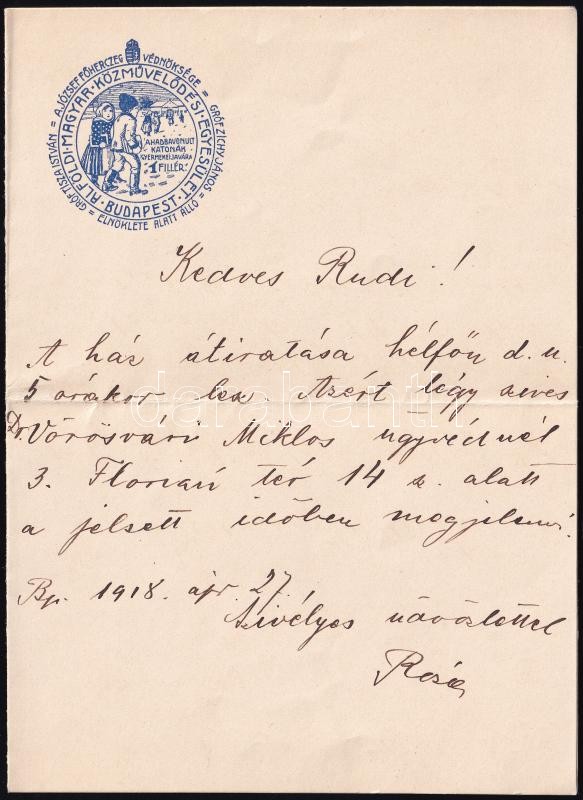 = A JÓZSEF FŐHERCZEG VÉDNÖKSÉGE =
GRÓF ZICHY JÁNOS =
GRÓF TISZA ISTVÁN =
= ELNÖKLETE ALATT ÁLLÓ =
ALFÖLDI · MAGYAR · KÖZMŰVELŐDÉSI · EGYESÜLET ·
· BUDAPEST ·
A HADBAVONULT
KATONÁK
GYERMEKEI JAVÁRA
1
FILLÉR
Kedves Rudi!
A ház átiratása hélfőn d. u.
5 órakor lex. Azért légy szives
Dr. Vörösvári Miklos ügyvédnél
3. Florian tér 14 sz. alatt
a jelsett időben megjelenni.
Bp. 1918. ápr. 27.
Szivélyes üdvözlettel
darabanth